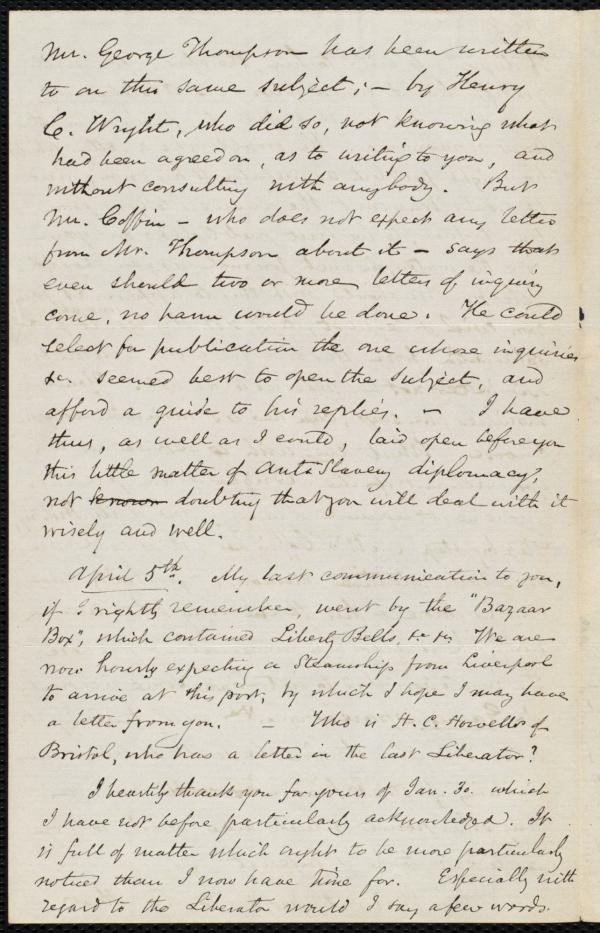 Mr. George Thompson has been written
to on this same subject; – by Henry
C. Wright, who did so, not knowing what
had been agreed on, as to writing to you, and
without consulting with anybody. But
Mr. Coffin – who does not expect any letter
from Mr. Thompson about it – says that
even should two or more letters of inquiry
come, no harm would be done. He could
select for publication the one whose inquiries
&c. seemed best to open the subject, and
afford a guide to his replies. – I have
thus, as well as I could, laid open before you
this little matter of Anti Slavery diplomacy,
not known doubting that you will deal with it
wisely and well.
April 5th. My last communication to you,
if I rightly remember, went by the "Bazaar
Box", which contained Liberty Bells, &c &c. We are
now hourly expecting a Steamship from Liverpool
to arrive at this port, by which I hope I may have
a letter from you. – Who is H. C. Howells of
Bristol, who has a letter in the last Liberator?
I heartily thank you for yours of Jan. 30. which
I have not before particularly acknowledged. It
is full of matter which ought to be more particularly
noticed than I now have time for. Especially with
regard to the Liberator would I say a few words.